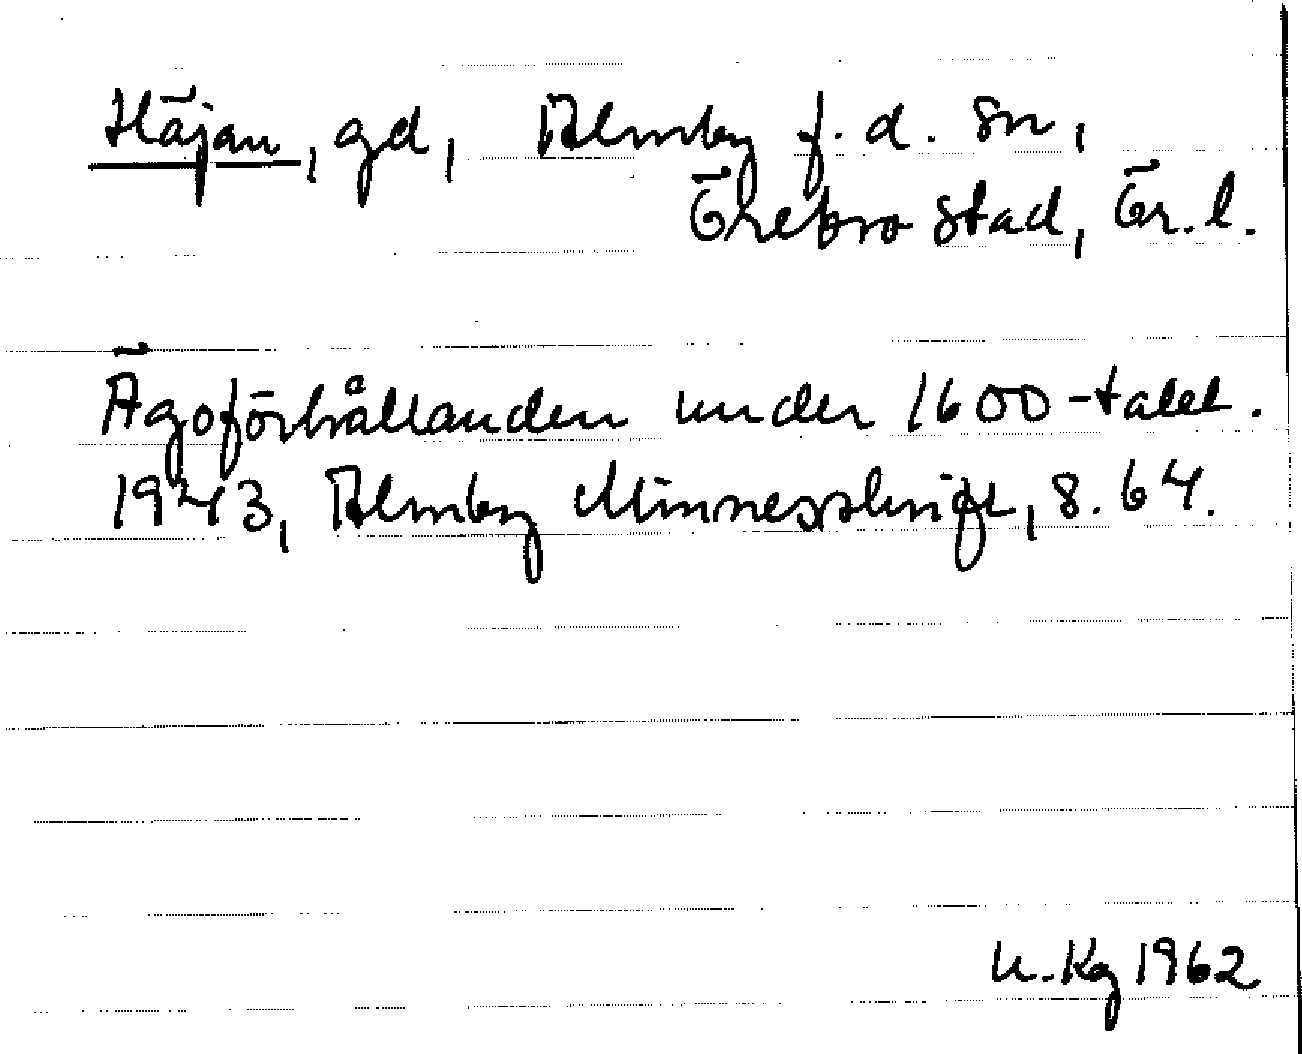 Häjan, gd, Almby f.d. sn,
Örebro stad, Ör.l.
Ägoförhållanden under 1600-talet.
1943, Almby Minnesskrift, s. 64.
U.Kg 1962